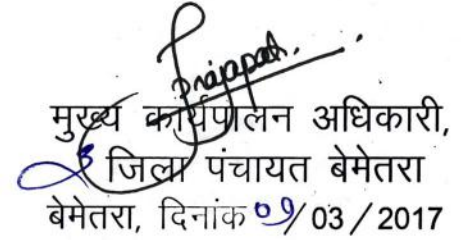 Prajapati.
मुख्य कार्यपालन अधिकारी,
जिला पंचायत बेमेतरा
बेमेतरा, दिनांक 09/03/2017